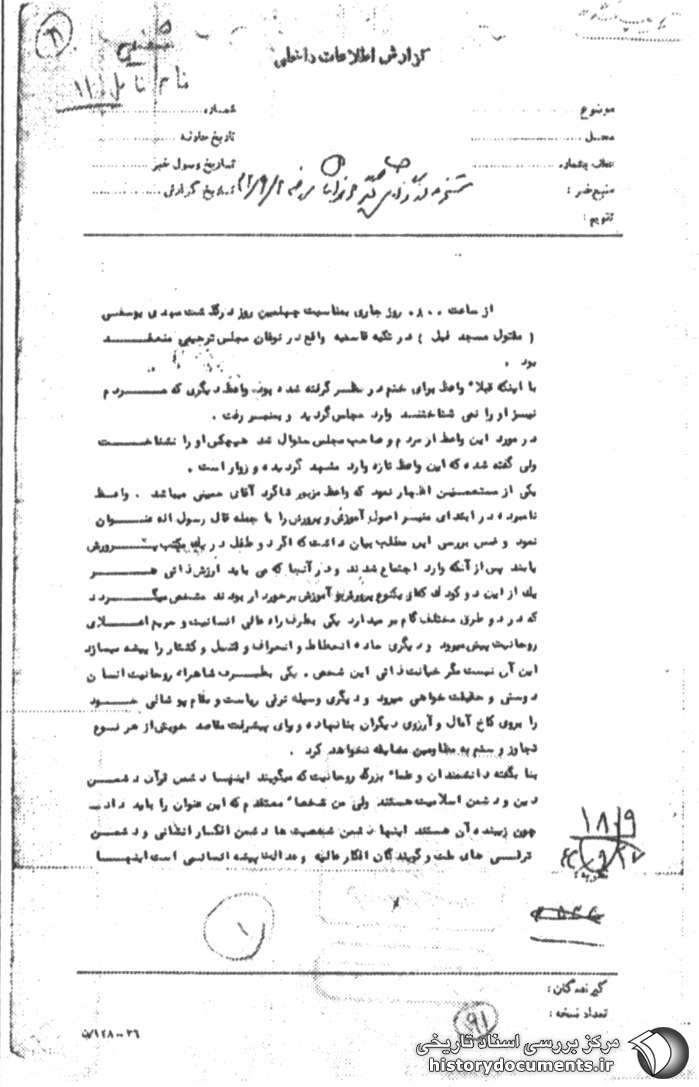 گزارش اطلاعات داخلی
۱۱
موضوع
شماره
محل
تاریخ حادثه
تاریخ وصول خبر
منبع خبر :
تاریخ گزارش
تقویم :
از ساعت ۰۸۰۰ روز جاری بمناسبت چهلمین روز درگذشت مهدی یوسفی
( مقتول مسجد فیل ) در تکیه قاسمیه واقع در نوغان مجلس ترحیمی منعقد
بود .
با اینکه قبلا" واعظ برای ختم در نظر گرفته شده بود، واعظ دیگری که مردم
نیز او را نمی شناختند وارد مجلس گردید و بمنبر رفت .
در مورد این واعظ از مردم و صاحب مجلس سئوال شد هیچکس او را نشناخت
ولی گفته شده که این واعظ تازه وارد مشهد گردیده و زوار است .
یکی از مستمعین اظهار نمود که واعظ مزبور شاگرد آقای خمینی میباشد . واعظ
نامبرده در ابتدای منبر اصول آموزش و پرورش را با جمله قال رسول اله عنوان
نمود و ضمن بررسی این مطلب بیان داشت که اگر دو طفل در یک مکتب پرورش
یابند پس از آنکه وارد اجتماع شدند و در آنجا که می باید ارزش ذاتی هر
یك از این دو کودك که از یکنوع پرورش و آموزش برخوردار بودند مشخص میگردد
که در دو طرق مختلف گام بر میدارد یکی بطرف راه عالی انسانیت و حریم اعلای
روحانیت پیش میرود و دیگری جاده انحطاط و انحراف و قتل و کشتار را پیشه میسازد
این آن نیست مگر خیانت ذاتی این شخص . یکی بطرف شاهراه روحانیت انسان
دوستی و حقیقت خواهی میرود و دیگری وسیله ترقی ریاست و مقام پوشالی خود
را بروی کاخ آمال و آرزوی دیگران بنا نهاده و برای پیشرفت مقاصد خویش از هر نوع
تجاوز و ستم به مظلومین مضایقه نخواهد کرد .
بنا بگفته دانشمندان و علماء بزرگ روحانیت که میگویند اینها دشمن قرآن دشمن
دین و دشمن اسلامیت هستند ولی من شخصا" معتقدم که این عنوان را باید داد
چون زیبنده آن هستند اینها دشمن شخصیت ها دشمن افکار انسانی و دشمن
ترقی های ملت و گویندگان افکار عالیه و عدالت پیشه انسانی است اینها
۱۸/۹
۱
گیرندگان :
تعداد نسخه :
۹۱
۱۲۸-۳۶/ن
مرکز بررسی اسناد تاریخی
historydocuments.ir